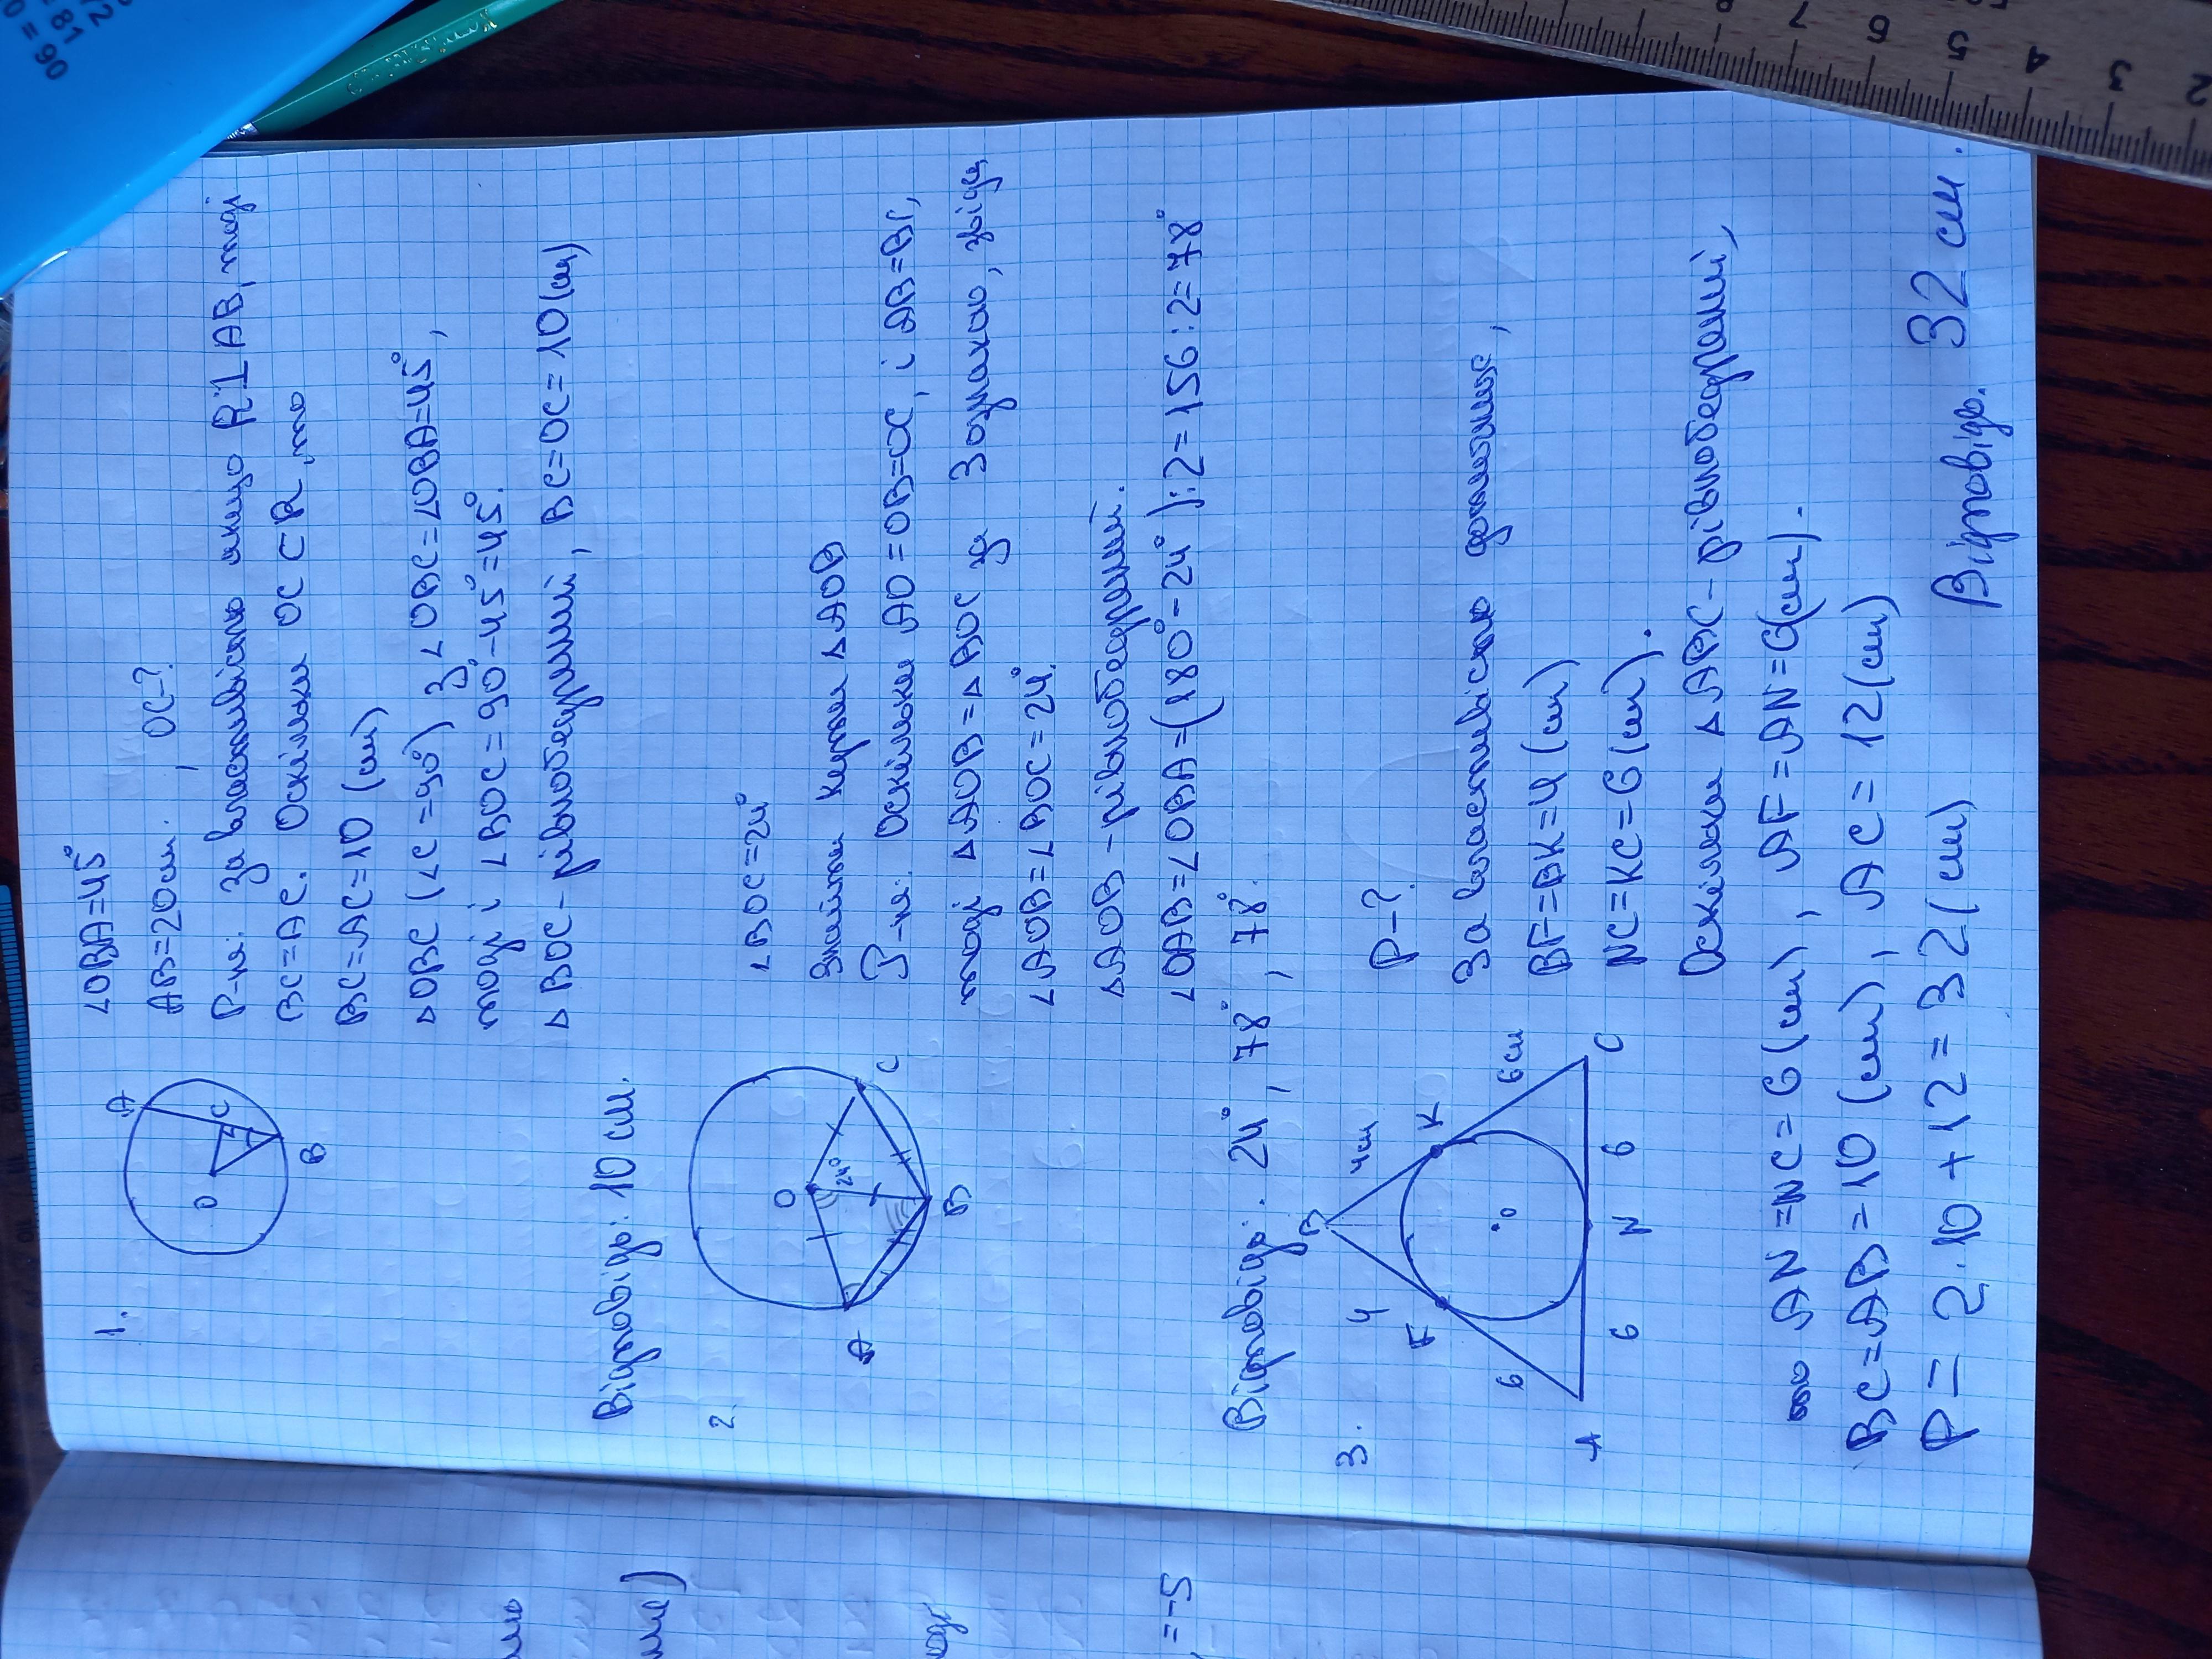 1.
∠OBA=45°
AB=20см, OC-?
Р-ня: За властивістю якщо R⊥AB, тоді
BC=AC. Оскільки OC⊂R, то
BC=AC=10 (см)
△OBC (∠C=90°) З ∠OBC=∠OBA=45°,
тоді і ∠BOC=90°-45°=45°.
△BOC-рівнобедрений, BC=OC=10(см)
Відповідь: 10 см.
2.
∠BOC=24°
Знайти кути △AOB
Р-ня: Оскільки AO=OB=OC, і AB=BC,
тоді △AOB=△BOC за 3 ознакою, звідси
∠AOB=∠BOC=24°.
△AOB-рівнобедрений.
∠OAB=∠OBA=(180°-24°):2=156:2=78°
Відповідь: 24°, 78°, 78°.
3.
P-?
За властивістю дотичних,
BF=BK=4 (см)
NC=KC=6(см).
Оскільки △ABC-рівнобедрений,
то AN=NC=6(см), AF=AN=6(см).
BC=AB=10 (см), AC=12(см)
P=2·10+12=32(см) Відповідь. 32 см.
A
O
C
B
O
24°
A
B
C
B
4
4см
F
K
6
6см
O
A
6
N
6
C
=-5
72
=81
0=90
2 3 4 5 6 7 8